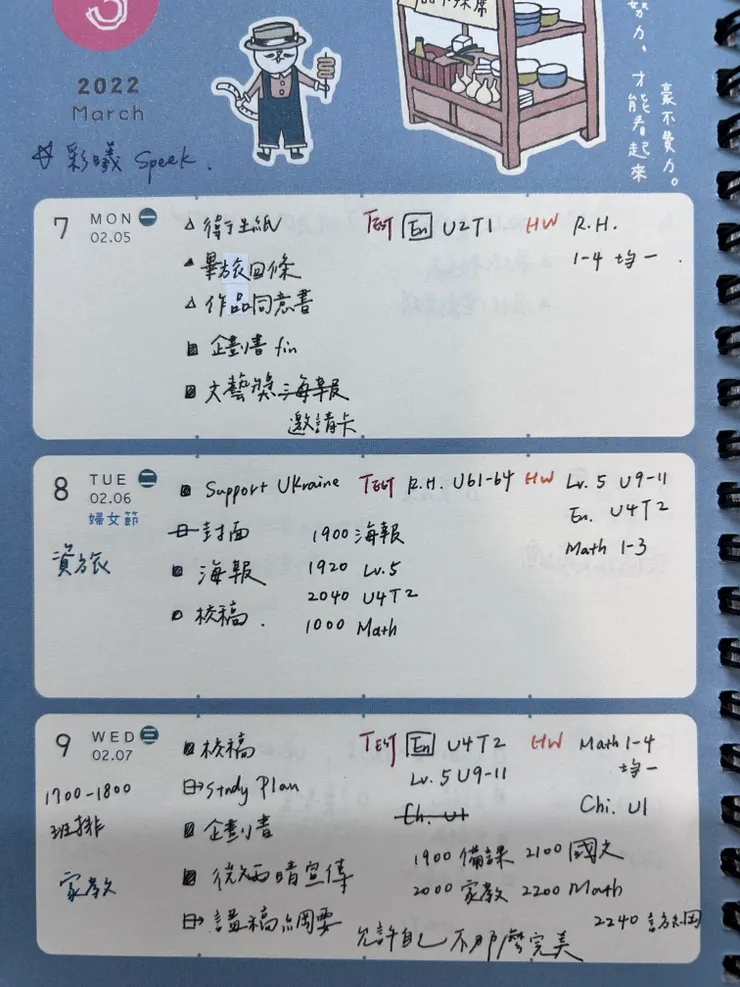 3
2022
March
☆ 彩曦 Speek.
努力，才能看起來
毫不費力。
7 MON 一
02.05
△ 衛生紙
▲ 畢旅回條
△ 作品同意書
■ 企劃書 fin
■ 文藝獎海報
邀請卡
TEST En U2T1
HW R.H.
1-4 均一.
8 TUE 二
02.06
婦女節
資旅
■ Support Ukraine
封面
■ 海報
校稿.
TEST R.H. U61-64
1900 海報
1920 Lv.5
2040 U4T2
1000 Math
HW Lv.5 U9-11
En. U4T2
Math 1-3
9 WED 三
02.07
1700-1800
班排
家教
■ 校稿
Study Plan
■ 企劃書
宣傳
講稿綱要
TEST En U4T2
Lv.5 U9-11
Ch. U1
HW Math 1-4
均一
Chi. U1
1900 備課 2100 國文
2000 家教 2200 Math
2240
允許自己不那麼完美